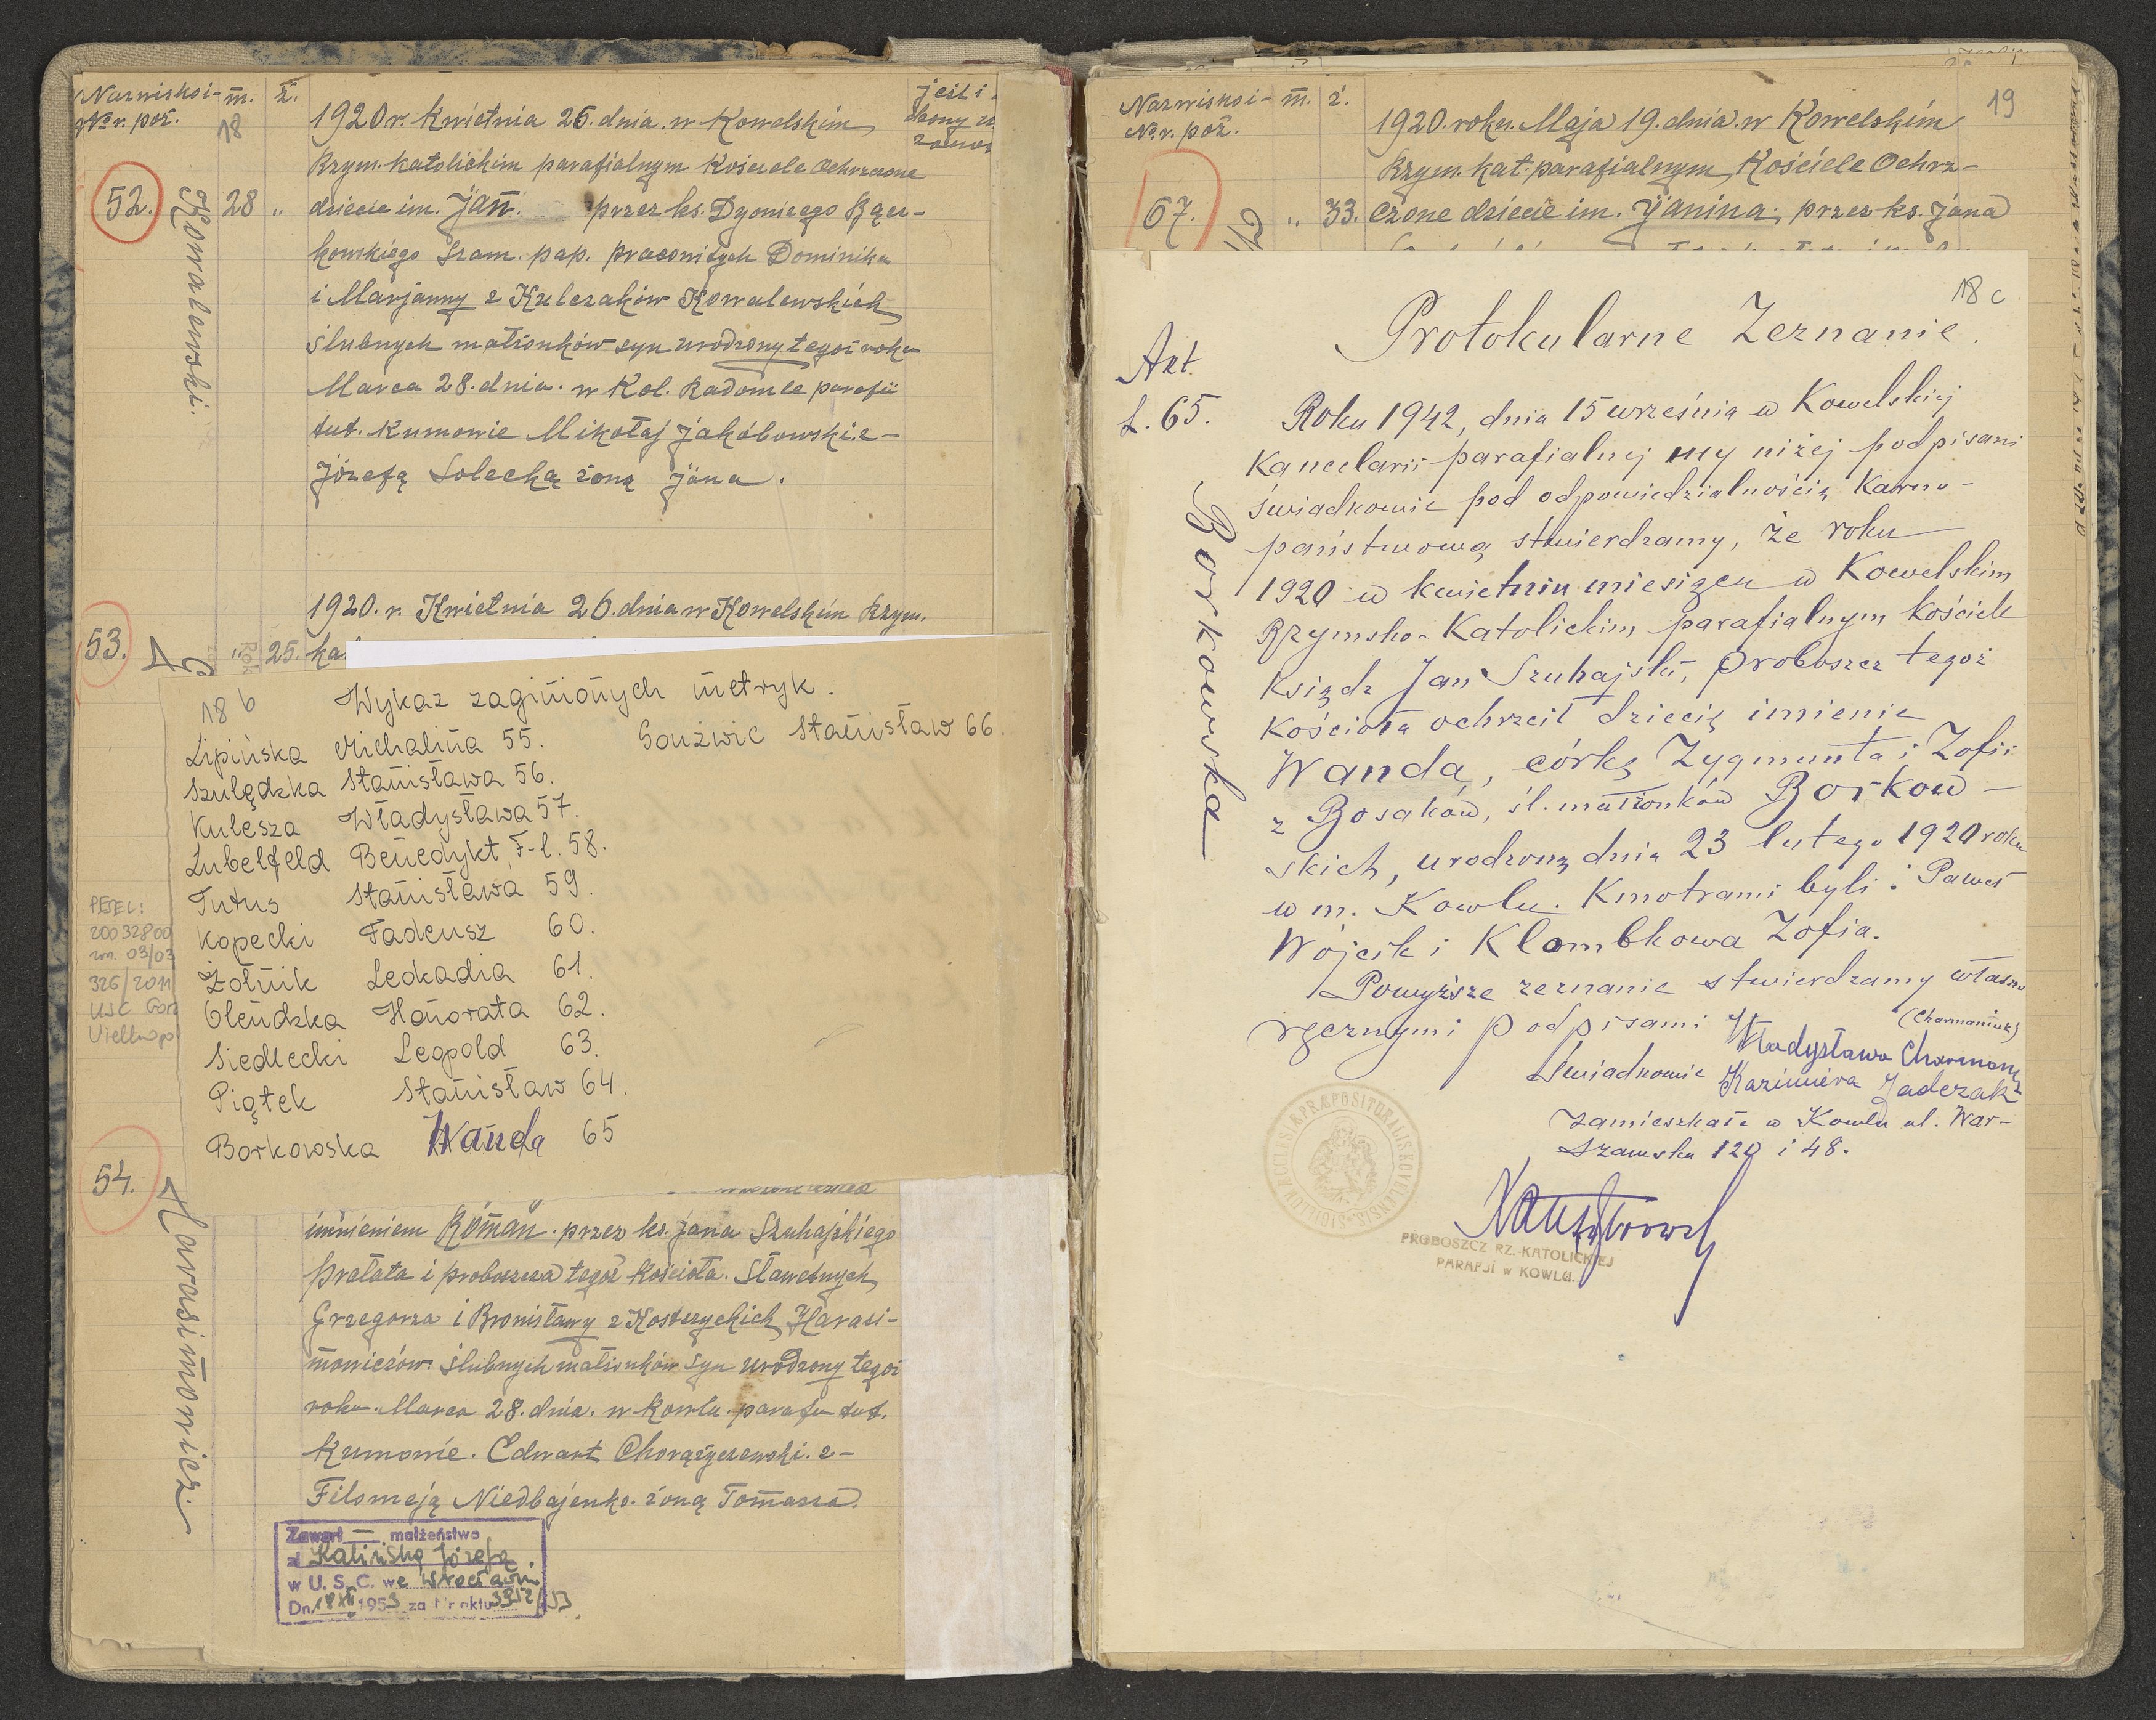 Nazwisko i- m. ż.
№ r. poż.
18
1920 r. Kwietnia 25. dnia. w Kowelskim
Rzym. katolickim parafialnym Kościele Ochrzczone
52.
Kowalewski.
28 „
dziecie im. Jan. przez ks. Dyonizego Bącz-
kowskiego Szam. pap. pracowitych Dominika
i Marjanny z Kulczaków Kowalewskich
ślubnych małżonków syn urodzony tegoż roku
Marca 28. dnia. w Kol. Radomle parafii
tut. Kumowie Mikołaj Jakóbowski. z-
Józefą Solecką żoną Jana.
1920. r. Kwietnia 26. dnia w Kowelskim Rzym.
53.
„ 25. ka
18 b
Wykaz zaginionych metryk.
Lipińska Michalina 55. Goużwic Stanisław 66.
Szulędzka Stanisława 56.
Kulesza Władysława 57.
Lubelfeld Benedykt, F-l. 58.
Tutus Stanisława 59.
Kopecki Tadeusz 60.
Żołnik Leokadia 61.
Olendzka Honorata 62.
Siedlecki Leopold 63.
Piątek Stanisław 64.
Borkowska Wanda 65
PESEL:
2003280
zm. 03/03
326/2011
USC Gorz
Wielkop
54.
Harasimowicz.
imieniem Roman. przez ks. Jana Szuhajskiego
Prałata i proboszcza tegoż Kościoła. Sławetnych
Grzegorza i Bronisławy z Kostrzyckich Harasi-
mowiczów ślubnych małżonków syn urodzony tegoż
roku. Marca 28. dnia. w Kowlu. parafii tut.
Kumowie. Edwart Chorążyczewski. z-
Filomeją Niedbajenko. żoną Tomasza.
Zawarł — małżeństwo
z Kalińską Józefą.
w U. S. C. we Wrocławiu
Dn. 18 XII 1953 za Nr aktu 3352/53
Nazwisko i- m. ż.
№ r. poż.
19
1920. roku. Maja 19. dnia. w Kowelskim
Rzym. kat. parafialnym Kościele Ochrz-
67.
„ 33.
czone dziecie im. Janina. przez ks. Jana
18 c
Protokularne Zeznanie.
Akt.
L. 65.
Borkowska
Roku 1942, dnia 15 września w Kowelskiej
Kancelarii parafialnej my niżej podpisani
świadkowie pod odpowiedzialnością Karno-
państwową stwierdzamy, że roku
1920 w kwietniu miesiącu w Kowelskim
Rzymsko-Katolickim parafialnym kościele
Ksiądz Jan Szuhajski, Proboszcz tegoż
Kościoła ochrzcił dziecię imienie
Wanda, córkę Zygmunta i Zofii
z Bosaków, śl. małżonków Borkow-
skich, urodzoną dnia 23 lutego 1920 roku
w m. Kowlu. Kmotrami byli: Paweł
Wójcik i Klombkowa Zofia.
Powyższe zeznanie stwierdzamy własno
ręcznymi podpisami
(Charmaniuk)
Władysława Charmaniuk
Świadkowie Kazimiera Jadczak
zamieszkałe w Kowlu ul. War-
szawska 120 i 48.
PROBOSZCZ RZ.-KATOLICKIEJ
PARAFJI w KOWLU.